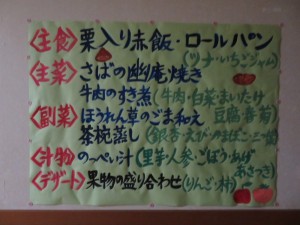 〈主食〉栗入り赤飯・ロールパン
(ツナ・いちごジャム)
〈主菜〉さばの幽庵焼き
牛肉のすき煮(牛肉・白菜・まいたけ
〈副菜〉ほうれん草のごま和え 豆腐・春菊)
茶椀蒸し(銀杏・えび・かまぼこ・三つ葉)
〈汁物〉の〜ぺい汁(里芋・人参・ごぼう・あげ
あさつき)
〈デザート〉果物の盛り合わせ(りんご・柿)